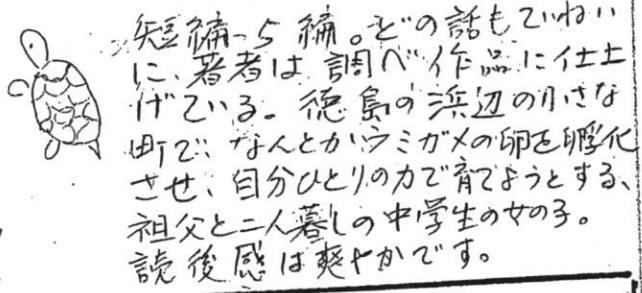 短編5編。どの話もていねい
に、著者は調べ作品に仕上
げている。徳島の浜辺の小さな
町で、なんとかウミガメの卵を孵化
させ、自分ひとりの力で育てようとする、
祖父と二人暮しの中学生の女の子。
読後感は爽やかです。